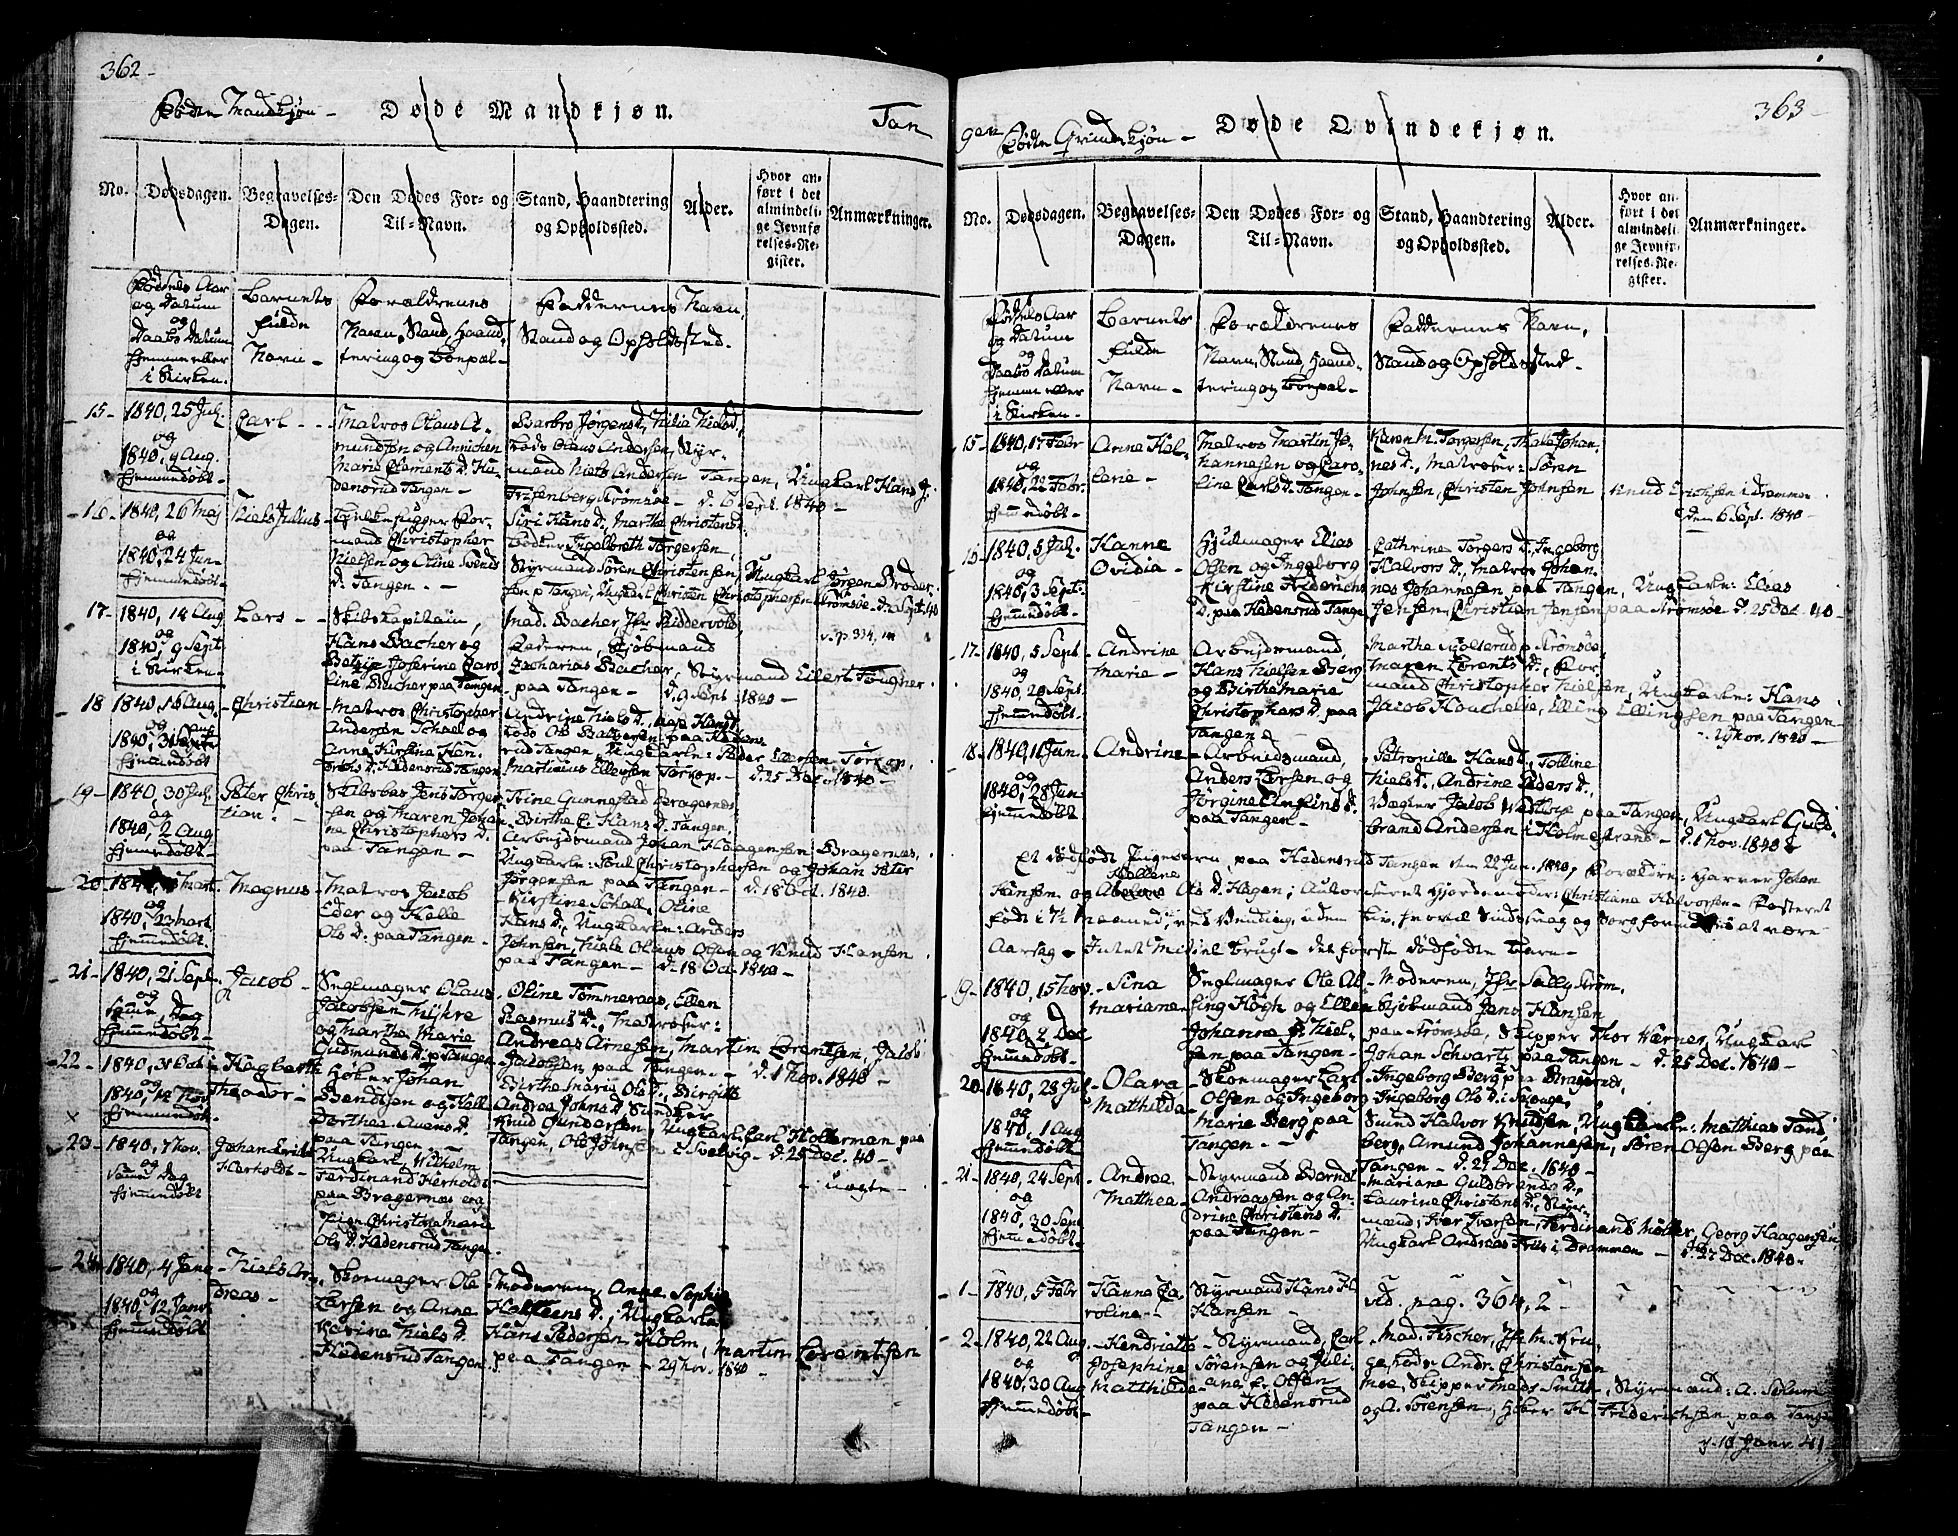 362-
Fødte Mandkjøn -
Døde Mandkjøn.
Tan
No.
Dødsdagen.
Begravelses-
Dagen.
Den Dødes For- og
Til-Navn.
Stand, Haandtering
og Opholdssted.
Alder.
Hvor an-
ført i det
almindeli-
ge Jevnfø-
relses-Re-
gister.
Anmærkninger.
Fødsels Aar
og Datum
og
Daabs Datum
hjemme eller
i Kirken.
Barnets
fulde
Navn -
Forældrenes
Navn, Stand, Haand-
tering og Boepæl-
Faddernes Navn,
Stand og Opholdssted.
15- 1840, 25 Jul.
og
1840, 9 Aug.
hjemmedøbt-
Carl - -
Matros Olaus A-
mundsen og Annichen
Marie Clements D. He-
densrud Tangen -
Barbro Jørgens D., Nilia Niels D.,
Lods Olaus Andersen, Styr-
mand Niels Andersen Tangen, Ungkarl Hans
Frisenberg Strømsøe - d. 6 Sept. 1840 -
16- 1840, 26 Maj
og
1840, 24 Jun-
hjemmedøbt-
Niels Julius-
For-
mand Christopher
Nielsen og Oline Svends
D. Tangen. -
Siri Hans D., Marthe Christens D.
Bødker Ingelbreth Torgersen,
Styrmand Søren Christensen, Ungkarl Jørgen Broder-
sen p Tangen, Ungkarl Christen Christophersen Strømsøe. d. 20 Sept. 40
17- 1840, 14 Aug
og
1840, 9 Sept
i Kirken-
Lars - -
Skibskapitain,
Hans Bacher og
Betzip Joserine Caro
line Bacher paa Tangen-
Mad. Bacher, Jfr Riddervold,
Faderen, Kjøbmand
Zacharias Bacher, Styrmand Eilert Fougner
paa Tangen - d. 9 Sept. 1840 -
v. p. 334, 14
18 1840 16 Aug.
og
1840, 31 Aug
hjemmedøbt
Christian
Matros Christopher
Andersen Schael og
Anne Kirstine Han-
D. Hedensrud Tangen
Andrine Niels D., Aase Hans D.
Lods Ole Baltzersen paa Hedens
rud Tangen, Ungkarle: Peder Larsen Torkop,
Martinius Ellevsen Torkop. - d. 25 Dec. 1840 -
19- 1840, 30 Jul.
og
1840, 2 Aug
hjemmedøbt-
Peter Chris-
tian. -
Skibsbas Jens Torger
sen og Maren Johan-
ne Christophers D.
paa Tangen -
Trine Gunnestad Bragernes
Birthe C. Hans D. Tangen,
Arbejdsmand Johan Haagensen Bragernæs,
Ungkarle: Poul Christophersen og Johan Peter
Jørgensen paa Tangen - d. 18 Oct. 1840.
20- 1840 Mart.
og
1840, 23 Mart
hjemmedøbt.
Magnus
Matros Jacob
Eder og Helle
Ols D. paa Tangen -
Kirstine Schall, Oline
Hans D., Ungkarle: Anders
Johnsen, Niels Olaus Olsen og Knud Hansen
paa Tangen - d. 18 Oct. 1840 -
21- 1840, 21 Sept.
og
samme Dag
hjemmedøbt
Jacob -
Seglmager Olaus
Jacobsen Nykre
og Marthe Marie
Gudmunds D. p Tangen
Oline Tømmeraas, Ellen
Rasmus D., Matroser:
Andreas Arnesen, Martin Lorentsen, Jacob
Jacobsen paa Tangen. - d. 1 Nov. 1840 -
22- 1840, 31 Oct.
og
1840, 14 Nov
hjemmedøbt.
Hagbarth
Theodor -
Høker Johan
Bendtsen og Helle
Dorthea Avens D.
paa Tangen -
Birthe Marie Ols D., Birgitte
Andrea Johns D. Snedker
Knud Gundersen, Ungkarl: Carl Holterman paa
Tangen, Ole Johnsen i Svelvig - d. 25 Dec. 40 -
x
23- 1840, 7 Nov.
og
samme Dag
hjemmedøbt
Johan
Herholdt-
Ungkarl, Wilhelm
Ferdinand Herholdt
paa Bragernes og
Pigen Christine Marie
Ols D. Hedensrud Tangen.
uægte -
24 1840, 4 Janv
og
1840, 12 Janv.
hjemmedøbt
Niels An-
dreas -
Skomager Ole
Larsen og Anne
Karine Niels D.
Hedensrud Tangen.
Moderen, Anne Sophie
Halsteens D., Ungkarle
Hans Pedersen Holm, Martin Lorentsen
paa Tangen - 29 Nov. 1840
363-
gen
Fødte Qvindekjøn -
Døde Qvindekjøn.
No.
Dødsdagen.
Begravelses-
Dagen.
Den Dødes For- og
Til-Navn.
Stand, Haandtering
og Opholdssted.
Alder.
Hvor an-
ført i det
almindeli-
ge Jevnfø-
relses-Re-
gister.
Anmærkninger.
Fødsels Aar
og Datum
og
Daabs Datum
hjemme eller
i Kirken -
Barnets
fulde
Navn -
Forældrenes
Navn, Stand, Haand-
tering og Boepæl-
Faddernes Navn,
Stand og Opholdssted -
15- 1840, 17 Febr
og
1840, 22 Febr.
hjemmedøbt-
Anne Hel-
lene -
Matros Martin Jo-
hannesen og Caro-
line Carls D. Tangen -
Karen M. Torgersen, Thale Johan-
nes D., Matroser: Søren
Johnsen, Christen Johnsen
Knud Erichsen i Drammen
den 6 Sept. 1840 -
16 1840, 5 Jul.
og
1840, 3 Sept:
hjemmedøbt
Hanne
Ovidia -
Hjulmager Elias
Olsen og Ingeborg
Kirstine Friderichs
D. paa Hedensrud Tange
Cathrine Torgers D., Ingeborg
Halvors D., Matros Johan-
nes Johannesen paa Tangen, Ungkarle: Elias
Jensen, Christian Jensen paa Strømsøe d. 25 Dec. 40 -
17- 1840, 5 Sept
og
1840, 20 Sept.
hjemmedøbt-
Andrine
Marie -
Arbejdsmand,
Hans Nielsen Berg
og Birthe Marie
Christophers D. paa
Tangen -
Marthe Strømsøe,
Maren Lorents D., For-
mand Christopher Nielsen, Ungkarle: Hans
Jacob, Elling Ellingsen paa Tangen -
1 Nov. 1840 -
18- 1840, 16 Jun.
og
1840, 28 Jun-
hjemmedøbt
Andrine
Arbeidsmand,
Anders Larsen og
Jørgine D.
paa Tangen -
Petronille Hans D., Tolline
Niels D., Andrine Peders D.,
Vægter Jacob paa Tangen, Ungkarl Guld-
brand Andersen i Holmestrand - d. 1 Nov. 1840
Et dødfødt Pigebarn, paa Hedensrud Tangen den 22 Jun. 1840, Forældre: Garver Johan
Hansen og Hellene Ols D. Hagen; Autoriseret Gjordemoder: Christiana Halvorsen - Fosteret
født i 7de Maaned, ved Vending, uden Liv, hvoraf Sindsmag og Sorg formenes at være
Aarsag - Intet Middel brugt - det første dødfødte Barn -
19- 1840, 15 Nov.
og
1840, 2 Dec
hjemmedøbt -
Sina
Mariane
Seglmager Ole Al-
fing Høgh og Ellen
Johanne Niel-
sen paa Tangen -
Moderen, Jfr Selly Strøm,
Kjøbmand Jens Hansen
paa Strømsøe, Skipper Thor Werner, Ungkarl
Johan Schvartz paa Tangen - d. 25 Dec. 1840 -
20- 1840, 28 Jul
og
1840, 1 Aug
hjemmedøbt -
Olava
Mathilda
Skomager Carl
Olsen og Ingeborg
Marie Berg paa
Tangen -
Ingeborg Berg paa Bragernes,
Ingeborg Ols D. i Skouge,
Svend Halvor Knudsen, Ungkarle: Mathias Sand
berg, Amund Johannesen, Søren Olsen Berg paa
Tangen - d. 27 Dec. 1840 -
21- 1840, 24 Sept
og
1840, 30 Sept
hjemmedøbt-
Andrea
Matthea
Styrmand Berndt
Andreassen og An-
drine Christens D.
paa Tangen -
Mariane Guldbrands D.,
Laurine Christens D., Styr-
mand, Iver Iversen, Ferdinand Møller, Georg Haagensen,
Ungkarl Andreas Friis i Drammen - d. 27 Dec. 1840 -
1- 1840, 5 Febr
Hanne Ca-
roline -
Styrmand Hans H.
Hansen -
vid. pag. 364, 2 -
2- 1840, 22 Aug.
og
1840, 30 Aug
hjemmedøbt-
Hendriette
Josephine
Matthilde
Styrmand, Carl
Sørensen og Juli-
ane F. Olsen
paa Hedensrud
Tangen -
Mad. Fischer, Jfr M. Kru-
ge, Andr. Christensen
Moe, Skipper Mads Smith, Styrmænd: A. Solum
og A. Sørensen, Høker H. Friderichsen paa Tangen
d. 10 Janv. 41